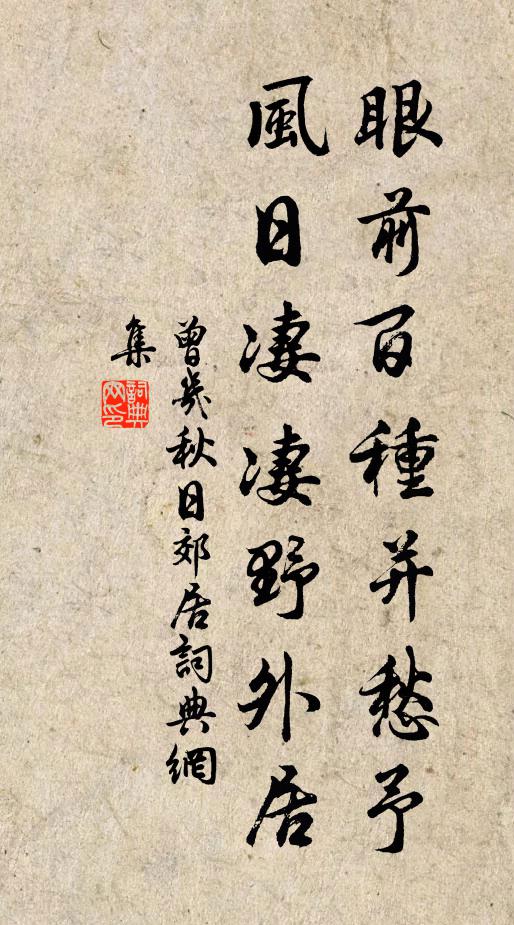 眼前百種并愁予
風日凄凄野外居
曾幾秋日郊居詞典網
集
詞典網印